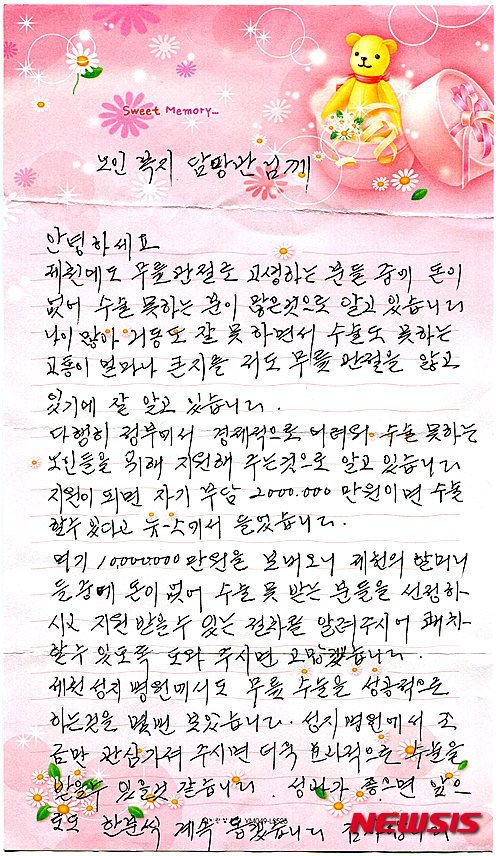 Sweet Memory...
노인 복지 담당관님께
안녕하세요
제천에도 무릎관절로 고생하는 분들 중에 돈이
없어 수술 못하는 분이 많은것으로 알고 있습니다
나이 많아 거동도 잘 못 하면서 수술도 못하는
고통이 얼마나 큰지를 저도 무릎 관절을 앓고
있기에 잘 알고 있습니다.
다행히 정부에서 경제적으로 어려워 수술 못하는
노인들을 위해 지원해 주는것으로 알고 있습니다
지원이 되면 자기 부담 2000.000 만원이면 수술
할수 있다고 뉴-스에서 들었습니다.
여기 10,000.000만원을 보내오니 제천의 할머니
들중에 돈이 없어 수술 못 받는 분들을 선정하
시고 지원 받을수 있는 절차를 알려주시어 쾌차
할수 있도록 도와 주시면 고맙겠습니다.
제천 성지 병원에서도 무릎 수술을 성공적으로
하는것을 몇번 보았습니다. 성지병원에서 조
금만 관심가져 주시면 더욱 효과적으로 수술을
받을수 있을것 같습니다. 성과가 좋으면 앞으
로도 한분씩 계속 돕겠습니다 감사합니다
NEWSIS